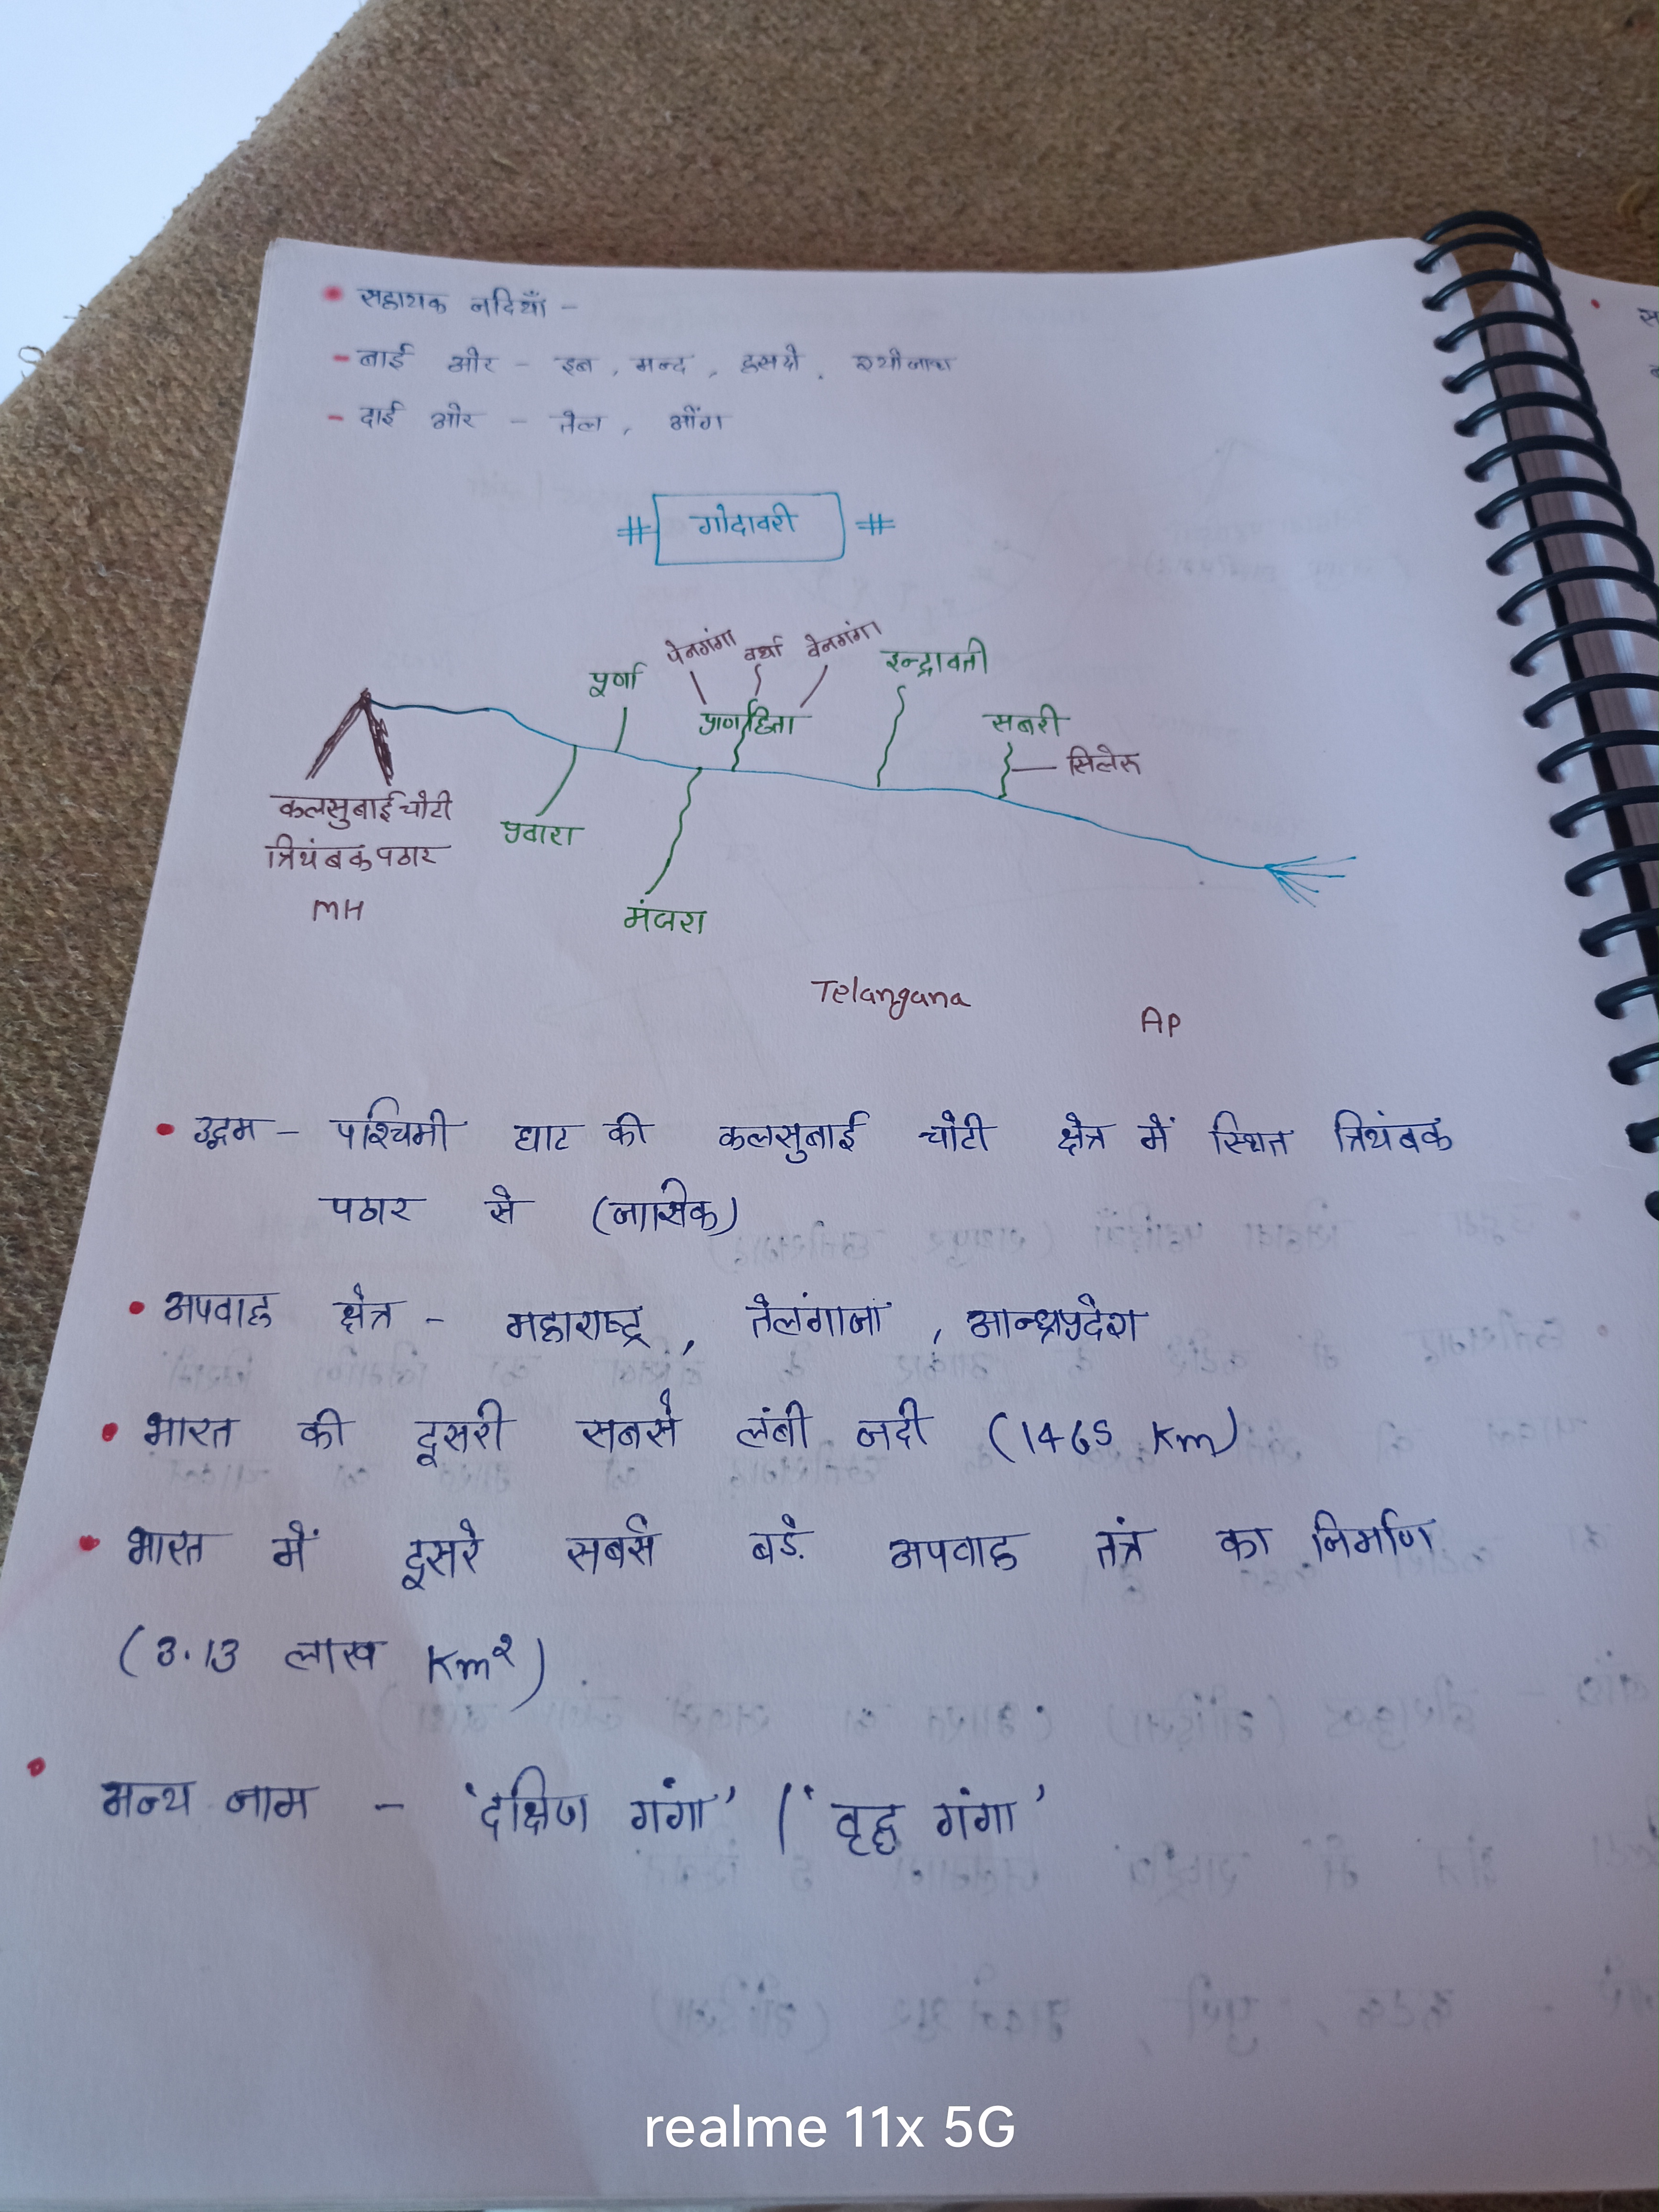 • सहायक नदियाँ -
- बाई ओर - इब, मन्द, हसदो, श्योनाथ
- दाई ओर - तेल, ओंग
# गोदावरी #
पेनगंगा वर्धा वेनगंगा
पूर्णा इन्द्रावती
प्राणहिता सबरी
सिलेरु
कलसुबाई चोटी
प्रवारा
त्रियंबक पठार
MH
मंजरा
Telangana
AP
• उद्गम - पश्चिमी घाट की कलसुबाई चोटी क्षेत्र में स्थित त्रियंबक
पठार से (नासिक)
• अपवाह क्षेत्र - महाराष्ट्र, तेलंगाना, आन्ध्रप्रदेश
• भारत की दूसरी सबसे लंबी नदी (1465 Km)
• भारत में दूसरे सबसे बड़े अपवाह तंत्र का निर्माण
(3.13 लाख Km²)
• अन्य नाम - 'दक्षिण गंगा' / 'वृद्ध गंगा'
realme 11x 5G